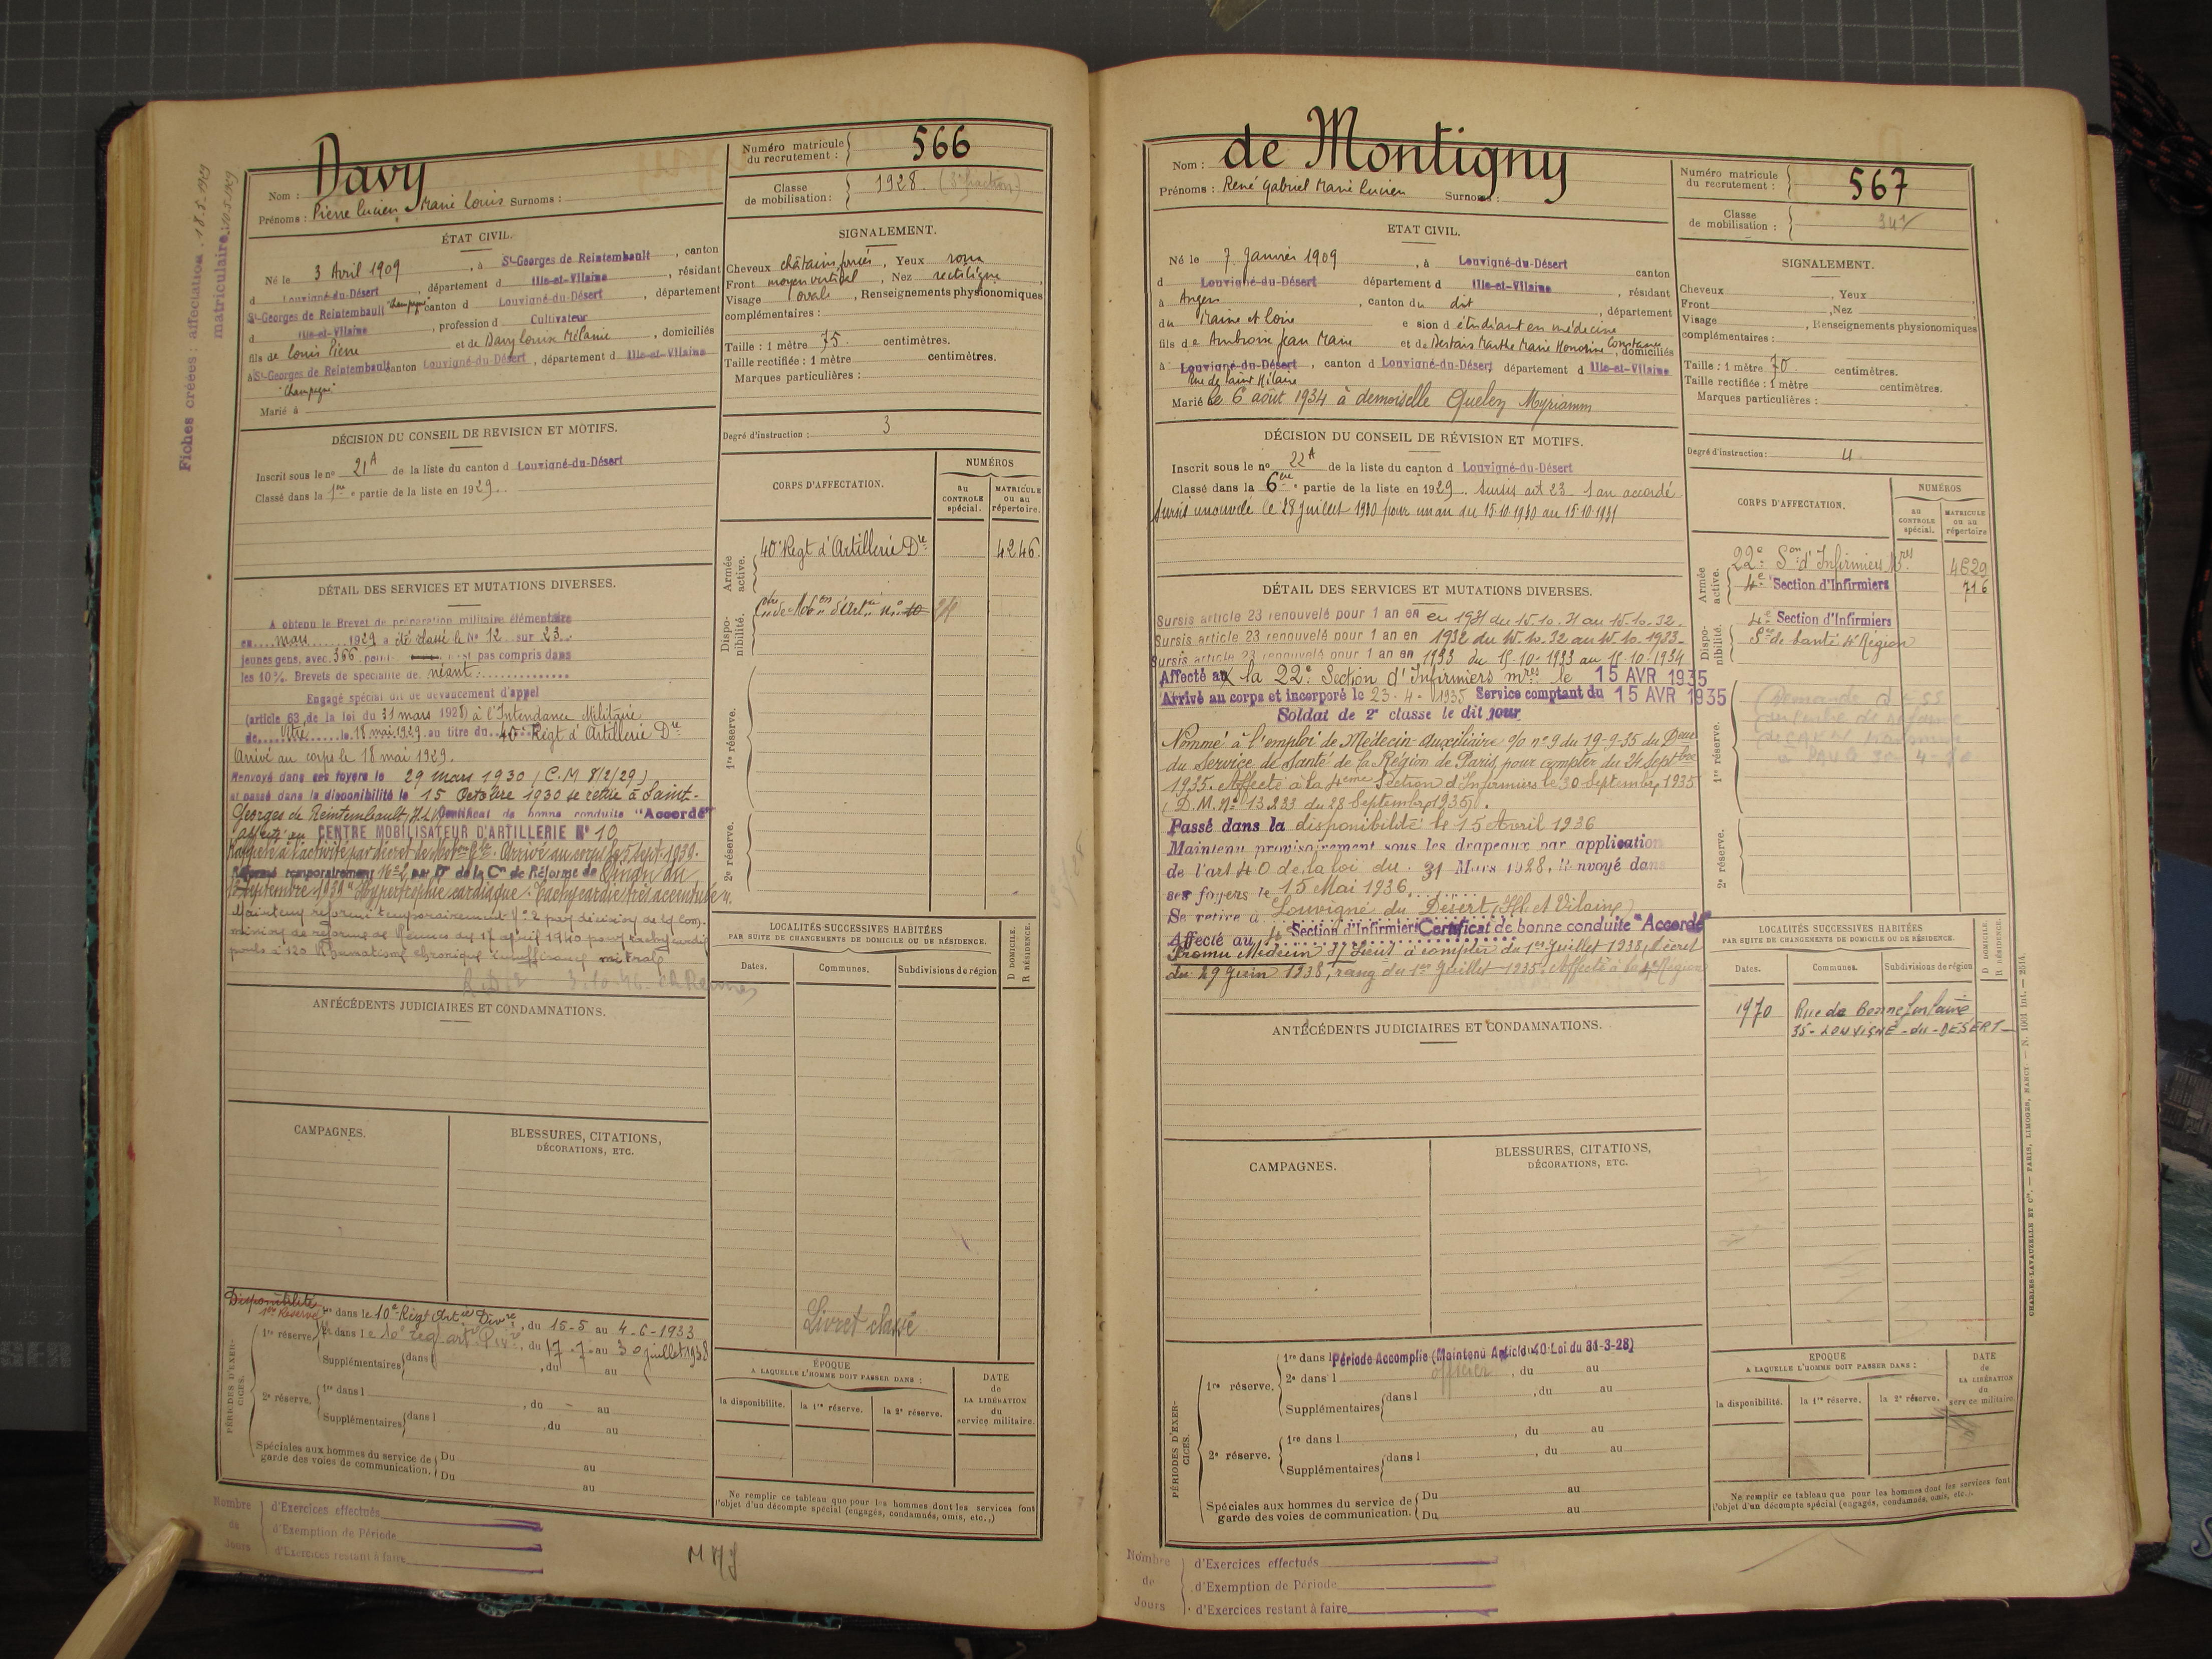 Fiches créées : affectation . 18.5.1929
matriculaire : 10.5.1929
Nom : Davy
Prénoms : Pierre Lucien Marie Louis Surnoms :
Numéro matricule du recrutement : 566
Classe de mobilisation : 1928. (3e fraction)
ÉTAT CIVIL.
Né le 3 Avril 1909, à St-Georges de Reintembault, canton
d Louvigné-du-Désert, département d Ille-et-Vilaine, résidant
à St-Georges de Reintembault "Champigné" canton d Louvigné-du-Désert, département
d Ille-et-Vilaine, profession d Cultivateur
fils de Louis Pierre et de Davy Louise Mélanie, domiciliés
à St-Georges de Reintembault canton Louvigné-du-Désert, département d Ille-et-Vilaine
"Champigné"
Marié à
SIGNALEMENT.
Cheveux châtains foncés, Yeux roux
Front moyen vertical, Nez rectiligne,
Visage ovale, Renseignements physionomiques
complémentaires :
Taille : 1 mètre 75. centimètres.
Taille rectifiée : 1 mètre centimètres.
Marques particulières :
Degré d'instruction : 3
DÉCISION DU CONSEIL DE REVISION ET MOTIFS.
Inscrit sous le no 21A de la liste du canton d Louvigné-du-Désert
Classé dans la 1ère partie de la liste en 1929.
CORPS D'AFFECTATION.
NUMÉROS
au CONTROLE spécial.
MATRICULE ou au répertoire.
Armée active.
40e Regt d'Artillerie Dre 4246.
Disponibilité.
1re réserve.
2e réserve.
DÉTAIL DES SERVICES ET MUTATIONS DIVERSES.
A obtenu le Brevet de préparation militaire élémentaire
en mars 1929 a été classé le No 12 sur 23.
jeunes gens, avec 366 points pas compris dans
les 10%. Brevets de spécialité de néant.
Engagé spécial dit de devancement d'appel
(article 63 de la loi du 31 mars 1928) à l'Intendance Militaire
de Vitré le 18 mai 1929 au titre du 40e Regt d'Artillerie Dre
Arrivé au corps le 18 mai 1929.
Renvoyé dans ses foyers le 29 mars 1930 (C.M 8/2/29)
et passé dans la disponibilité le 15 Octobre 1930 se retire à Saint-
Georges de Reintembault (I&V) Certificat de bonne conduite "Accordé"
affecté au CENTRE MOBILISATEUR D'ARTILLERIE No 10
Rappelé à l'activité par décret de Mobon Gle. Arrivé au corps le 5 sept. 1939.
Réformé temporairement No 2 par Don de la Con de Réforme de Dinan du
Septembre 1939 "Hypertrophie cardiaque. Tachycardie très accentuée".
Maintenu réformé temporairement No 2 par décision de la Com-
mission de réforme de Rennes du 17 avril 1940 pour tachycardie
pouls à 120 Rhumatisme chronique insuffisance mitrale
3.10.46. Rennes
LOCALITÉS SUCCESSIVES HABITÉES
PAR SUITE DE CHANGEMENTS DE DOMICILE OU DE RÉSIDENCE.
D DOMICILE.
R RÉSIDENCE.
Dates. Communes. Subdivisions de région
ANTÉCÉDENTS JUDICIAIRES ET CONDAMNATIONS.
CAMPAGNES.
BLESSURES, CITATIONS,
DÉCORATIONS, ETC.
Livret classé
PÉRIODES D'EXERCICES.
Disponibilité
1re Réserve dans le 10e Regt Artie Divre, du 15-5 au 4-6-1933
1re réserve. 2e dans le 10e reg art Divre, du 17-7 au 30 juillet 1938
Supplémentaires dans l , du au
2e réserve. 1re dans l , du au
Supplémentaires dans l , du au
Spéciales aux hommes du service de garde des voies de communication. Du au
Du au
ÉPOQUE
A LAQUELLE L'HOMME DOIT PASSER DANS :
la disponibilité. la 1re réserve. la 2e réserve.
DATE de LA LIBÉRATION du service militaire.
Ne remplir ce tableau que pour les hommes dont les services font
l'objet d'un décompte spécial (engagés, condamnés, omis, etc.,)
Nombre de Jours
d'Exercices effectués
d'Exemption de Période
d'Exercices restant à faire
Nom : de Montigny
Prénoms : René Gabriel Marie Lucien Surnoms :
Numéro matricule du recrutement : 567
Classe de mobilisation :
ETAT CIVIL.
Né le 7 Janvier 1909, à Louvigné-du-Désert canton
d Louvigné-du-Désert département d Ille-et-Vilaine, résidant
à Angers, canton du dit, département
du Maine et Loire e sion d étudiant en médecine
fils de Ambroise Jean Marie et de Destais Marthe Marie Honorine Constance, domiciliés
à Louvigné-du-Désert, canton d Louvigné-du-Désert département d Ille-et-Vilaine
Rue de Saint Hilaire
Marié le 6 août 1934 à demoiselle Quelen Myriamm
SIGNALEMENT.
Cheveux , Yeux
Front , Nez
Visage , Renseignements physionomiques
complémentaires :
Taille : 1 mètre 70 centimètres.
Taille rectifiée : 1 mètre centimètres.
Marques particulières :
Degré d'instruction : 4
DÉCISION DU CONSEIL DE RÉVISION ET MOTIFS.
Inscrit sous le no 22A de la liste du canton d Louvigné-du-Désert
Classé dans la 6eme partie de la liste en 1929. Sursis art 23 1 an accordé
Sursis renouvelé le 28 juillet 1930 pour un an du 15.10.1930 au 15.10.1931
CORPS D'AFFECTATION.
NUMÉROS
au CONTROLE spécial.
MATRICULE ou au répertoire
Armée active.
22e Son d'Infirmiers Mres 4629
4e Section d'Infirmiers 716
Disponibilité.
4e Section d'Infirmiers
Sce de Santé 4e Région
1re réserve.
2e réserve.
DÉTAIL DES SERVICES ET MUTATIONS DIVERSES.
Sursis article 23 renouvelé pour 1 an en 1931 du 15.10.31 au 15.10.32.
Sursis article 23 renouvelé pour 1 an en 1932 du 15.10.32 au 15.10.1933.
Sursis article 23 renouvelé pour 1 an en 1933 du 15-10-1933 au 15-10-1934
Affecté à la 22e Section d'Infirmiers mres le 15 AVR 1935
Arrivé au corps et incorporé le 23-4-1935 Service comptant du 15 AVR 1935
Soldat de 2e classe le dit jour
Nommé à l'emploi de Médecin-auxiliaire o/o no 9 du 19-9-35 du Deur
du Service de Santé de la Région de Paris, pour compter du 24 Septbre
1935. Affecté à la 4eme Section d'Infirmiers le 30 Septembre 1935
(D.M. No 13.233 du 28 Septembre 1935).
Passé dans la disponibilité le 15 Avril 1936
Maintenu provisoirement sous les drapeaux par application
de l'art 40 de la loi du 31 Mars 1928. Renvoyé dans
ses foyers le 15 Mai 1936.
Se retire à Louvigné du Désert (Ille et Vilaine)
Affecté au 4e Section d'Infirmiers Certificat de bonne conduite "Accordé"
Promu Médecin S/Lieut à compter du 1er Juillet 1938, Décret
du 29 Juin 1938, rang du 1er Juillet 1935. Affecté à la 4e Région
LOCALITÉS SUCCESSIVES HABITÉES
PAR SUITE DE CHANGEMENTS DE DOMICILE OU DE RÉSIDENCE.
D DOMICILE
R RÉSIDENCE.
Dates. Communes. Subdivisions de région
1970 Rue de Bonne Fontaine
35-LOUVIGNÉ-du-DÉSERT
ANTÉCÉDENTS JUDICIAIRES ET CONDAMNATIONS.
CAMPAGNES.
BLESSURES, CITATIONS,
DÉCORATIONS, ETC.
PÉRIODES D'EXERCICES.
1re réserve. 1re dans l Période Accomplie (Maintenu Article 40 Loi du 31-3-28)
2e dans l officier, du au
Supplémentaires dans l , du au
2e réserve. 1re dans l , du au
Supplémentaires dans l , du au
Spéciales aux hommes du service de garde des voies de communication. Du au
Du au
EPOQUE
A LAQUELLE L'HOMME DOIT PASSER DANS :
la disponibilité. la 1re réserve. la 2e réserve.
DATE de LA LIBÉRATION du service militaire.
Ne remplir ce tableau que pour les hommes dont les services font
l'objet d'un décompte spécial (engagés, condamnés, omis, etc.).
CHARLES-LAVAUZELLE ET Cie. — PARIS, LIMOGES, NANCY — N. 1001 int. — 2514.
Nombre de Jours
d'Exercices effectués
d'Exemption de Période
d'Exercices restant à faire